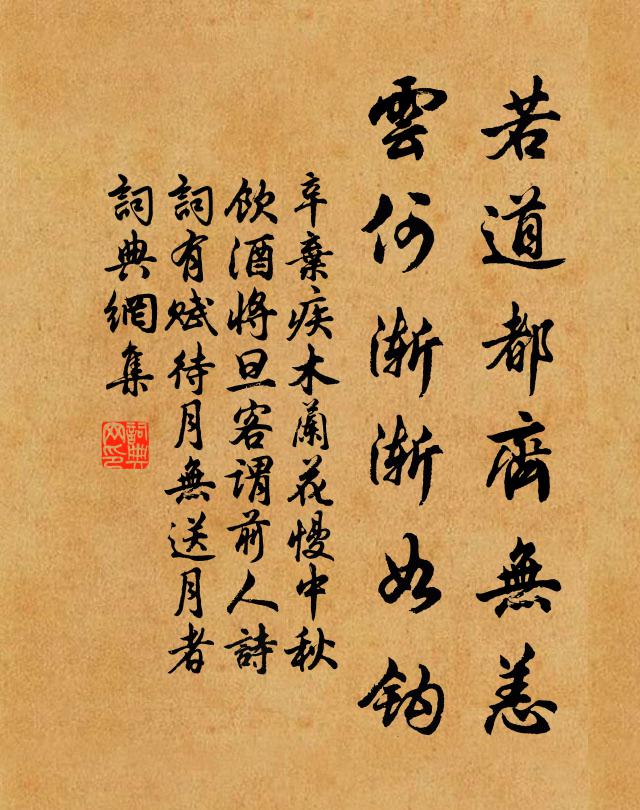 若道都齊無恙
雲何漸漸如鈎
辛棄疾木蘭花慢中秋
飲酒將旦客謂前人詩
詞有賦待月無送月者
詞典網集
詞典
网印